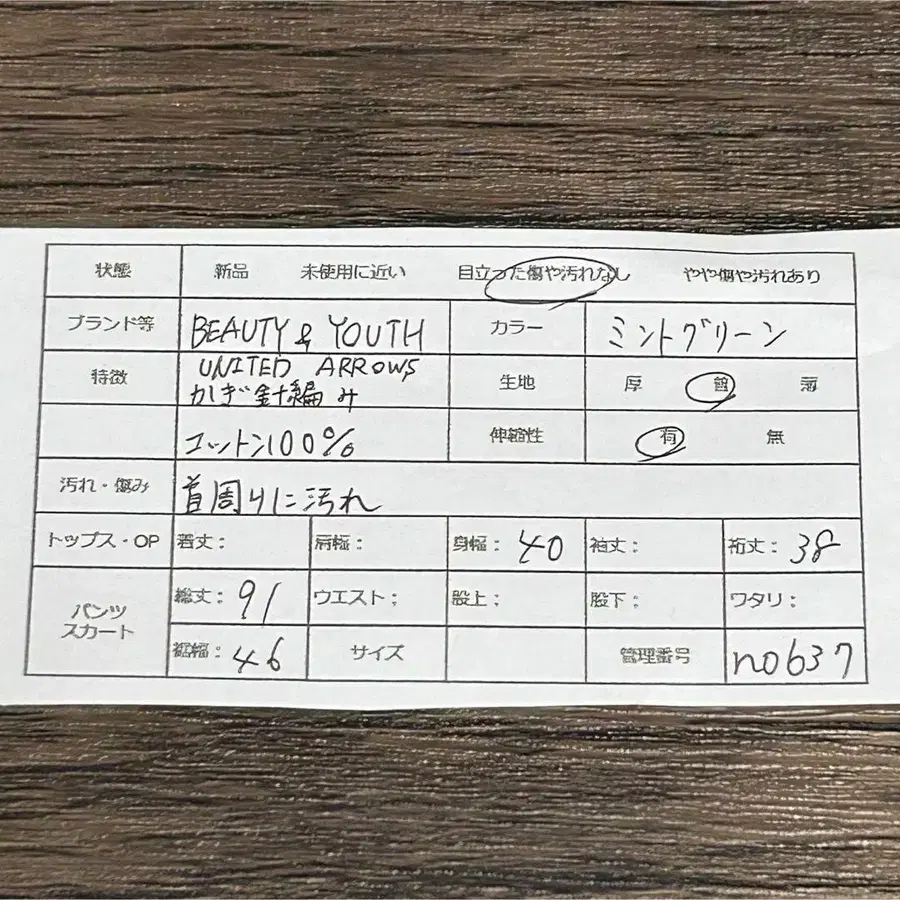 状態 新品 未使用に近い 目立った傷や汚れなし やや傷や汚れあり
ブランド等 BEAUTY & YOUTH カラー ミントグリーン
UNITED ARROWS
特徴 かぎ針編み 生地 厚 普 薄
コットン100% 伸縮性 有 無
汚れ・傷み 首周りに汚れ
トップス・OP 着丈: 肩幅: 身幅: 40 袖丈: 裄丈: 38
パンツ スカート 総丈: 91 ウエスト: 股上: 股下: ワタリ:
裾幅: 46 サイズ 管理番号 no637